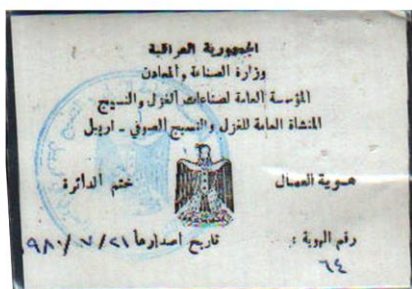 الجمهورية العراقية
وزارة الصناعة والمعادن
المؤسسة العامة لصناعات الغزل والنسيج
المنشاة العامة للغزل والنسيج الصوفي - اربيل
هوية العمال
ختم الدائرة
رقم الهوية :
تاريخ اصدارها ١٩٨٠/٧/٢١
٦٤